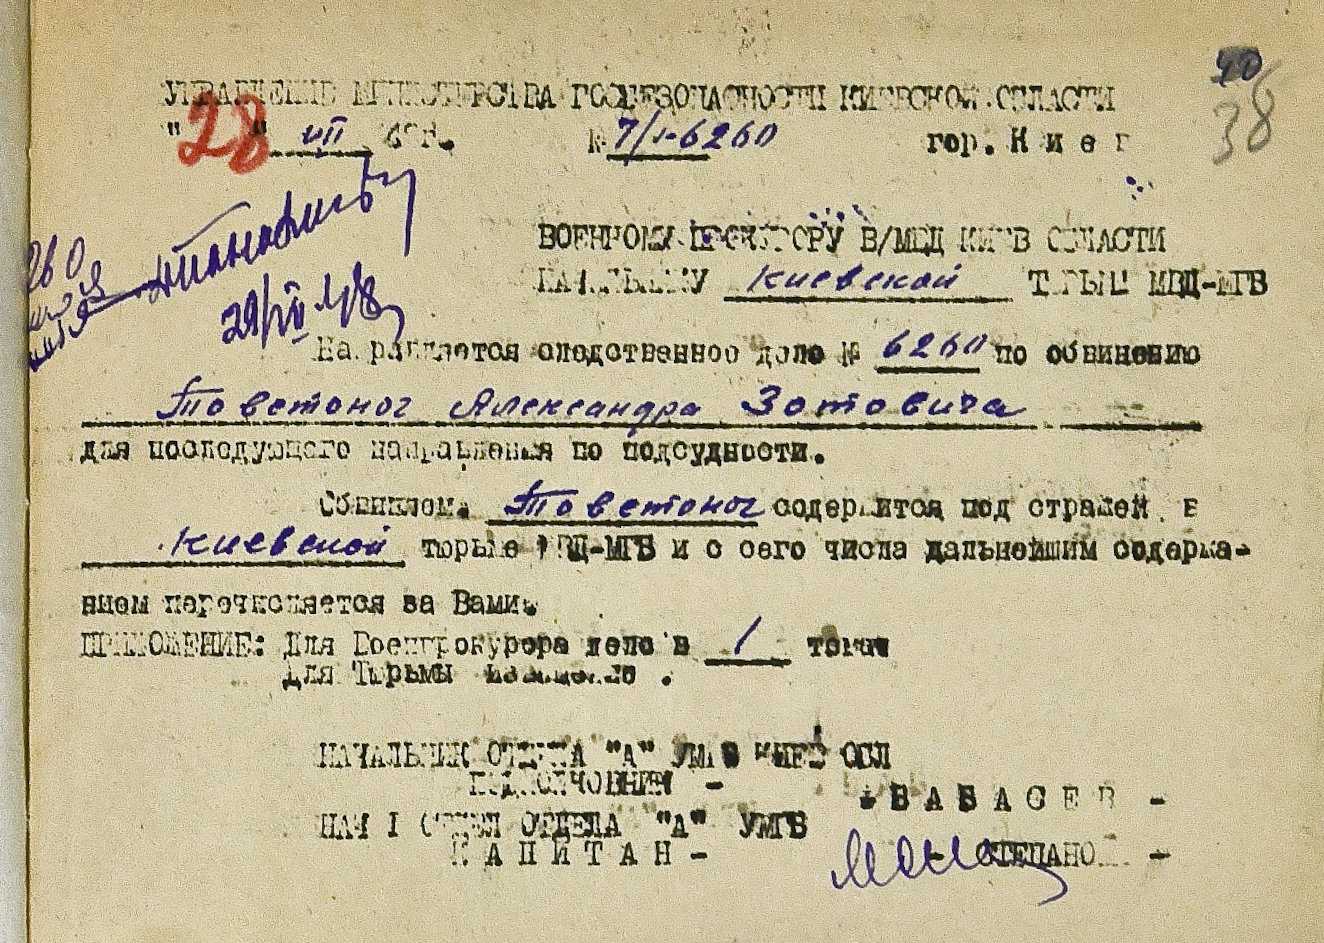 40
38
УПРАВЛЕНИЕ МИНИСТЕРСТВА ГОСБЕЗОПАСНОСТИ КИЕВСКОЙ ОБЛАСТИ
"28" VII г. № 7/1-6260 гор. Киев
ВОЕННОМУ ПРОКУРОРУ В/МВД КИЕВ ОБЛАСТИ
НАЧАЛЬНИКУ Киевской ТЮРЬМЫ МВД-МГБ
29/VII 48
Направляется следственное дело № 6260 по обвинению
Товстоног Александра Зотовича
для последующего направления по подсудности.
Обвиняем. Товстоног содержится под стражей в
Киевской тюрьме МВД-МГБ и с сего числа дальнейшим содержа-
нием перечисляется за Вами.
ПРИЛОЖЕНИЕ: Для Военпрокурора дело в 1 томах
Для Тюрьмы .
НАЧАЛЬНИК ОТДЕЛА "А" УМГБ КИЕВ ОБЛ
ПОДПОЛКОВНИК -
НАЧ 1 ОТДЕЛ ОТДЕЛА "А" УМГБ
КАПИТАН -